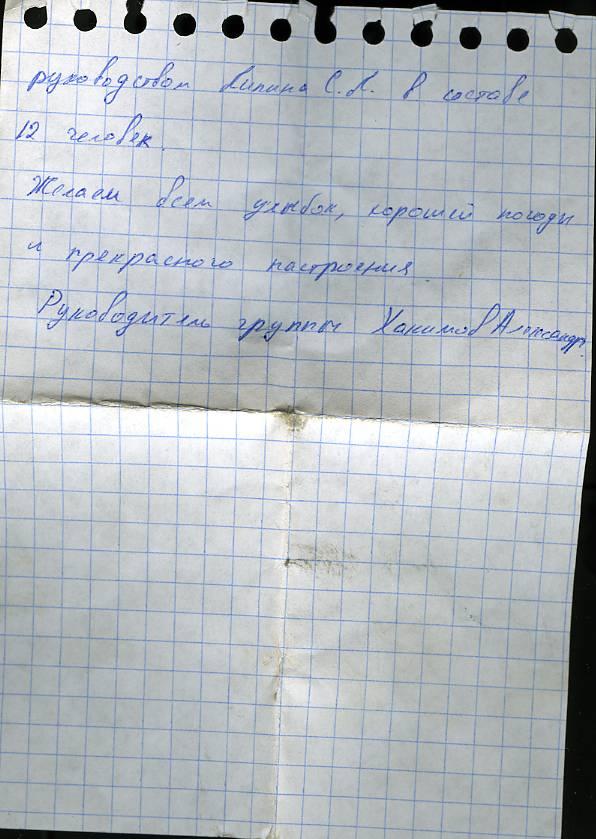 руководством Липина С.Л. в составе
12 человек.
Желаем всем улыбок, хорошей погоды
и прекрасного настроения
Руководитель группы Хакимов Александр.